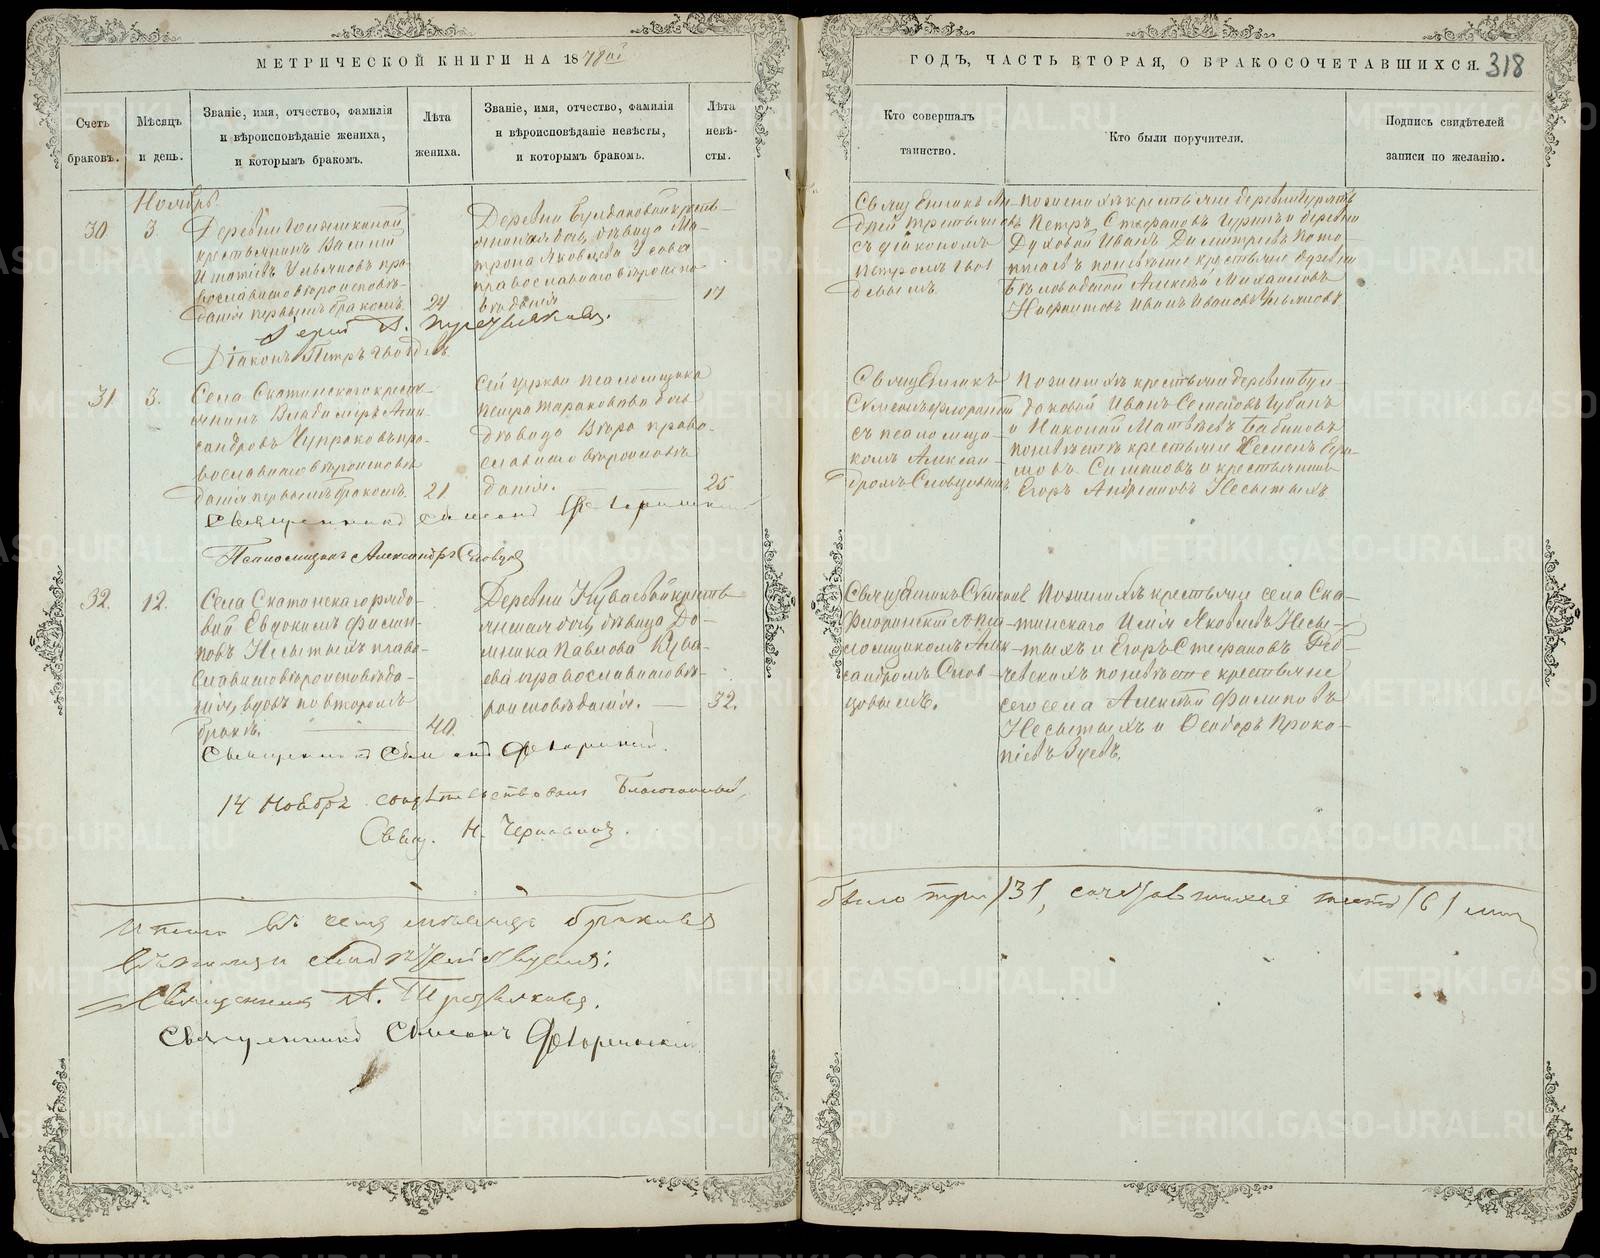 МЕТРИЧЕСКОЙ КНИГИ НА 1878 ой
ГОДЪ, ЧАСТЬ ВТОРАЯ, О БРАКОСОЧЕТАВШИХСЯ. 318
Счетъ браковъ.
Мѣсяцъ и день.
Званіе, имя, отчество, фамилія
и вѣроисповѣданіе жениха,
и которымъ бракомъ.
Лѣта жениха.
Званіе, имя, отчество, фамилія
и вѣроисповѣданіе невѣсты,
и которымъ бракомъ.
Лѣта невѣ-
сты.
Кто совершалъ
таинство.
Кто были поручители.
Подпись свидѣтелей
записи по желанію.
Ноябрь
30
3.
Деревни
крестьянинъ Василий
Игнатіевъ Ульяновъ пра-
вославнаго вѣроисповѣ-
данія первымъ бракомъ.
24
Деревни Булдаковой кресть-
дѣвица Ма-
трона Яковлева Усова
православнаго вѣроиспо-
вѣданія
17
Священникъ
съ діакономъ
Петромъ
По женихѣ крестьяне деревни
Петръ Стефановъ и деревни
Духовой Иванъ Димитріевъ
по невѣстѣ крестьяне деревни
Алексѣй Михаиловъ
Иванъ Ивановъ Ульяновъ
Діаконъ Петръ
31
3.
Села Скатинскаго кресть-
янинъ Владиміръ Алек-
сандровъ Чупраковъ пра-
вославнаго вѣроисповѣ-
данія первымъ бракомъ.
21
Сей церкви псаломщика
Петра Тараковова дочь
дѣвица Вѣра право-
славнаго вѣроисповѣ-
данія.
25
Священникъ
Симеонъ Флоринскій
съ псаломщи-
комъ Алексан-
дромъ Словцовымъ
По женихѣ крестьяне деревни Бул-
даковой Иванъ Семеновъ Губинъ
и Николай Матвѣевъ Бабиновъ
по невѣстѣ крестьяне Семенъ
Симановъ и крестьянинъ
Егоръ Андреановъ Несытыхъ
Священникъ Симеонъ Флоринскій
Псаломщикъ Александръ Словцовъ
32.
12.
Села Скатинскаго рядо-
вой Евдокимъ Филип-
повъ Несытыхъ право-
славнаго вѣроисповѣда-
нія, вдовъ по второмъ
бракѣ.
40.
Деревни Куваевой кресть-
янская дочь дѣвица До-
мника Павлова Кува-
ева православнаго вѣ-
роисповѣданія.
32.
Священникъ Симеонъ
Флоринскій съ пса-
ломщикомъ Алек-
сандромъ Слов-
цовымъ.
По женихѣ крестьяне села Ска-
тинскаго Исай Яковлевъ Несы-
тыхъ и Егоръ Стефановъ
по невѣстѣ крестьяне
сего села Алексѣй Филиповъ
Несытыхъ и Ѳеодоръ Проко-
піевъ Зуевъ.
Священникъ Симеонъ Флоринскій.
14 Ноября свидѣтельствовалъ Благочинный,
Свящ. Н.
Итого въ семъ мѣсяцѣ браковъ
было три /3/, сочетавшихся шесть /6/ лицъ
Священникъ А. Третьяковъ.
Священникъ Симеонъ Флоринскій
METRIKI.GASO-URAL.RU